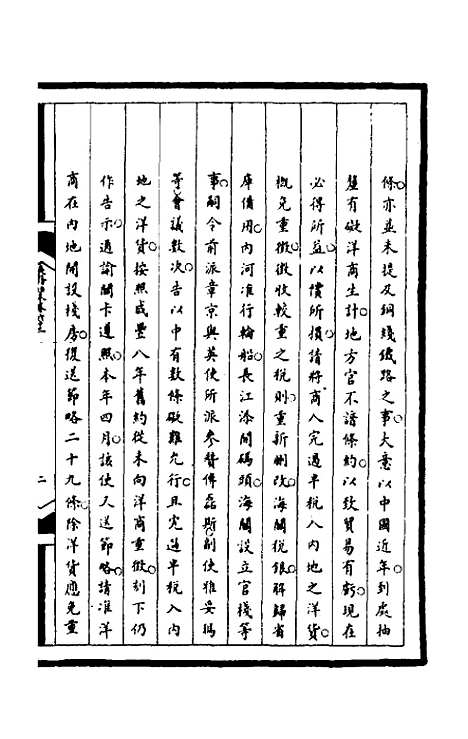 條亦並未提及銅綫鐵路之事大意以中國近年到處抽
釐有礙洋商生計地方官不諳條約以致貿易有虧現在
必得所益以償所損請將商人完過半稅入內地之洋貨
概免重徵徵收較重之稅則重新刪改海關稅銀解歸省
庫備用內河准行輪船長江添開碼頭海關設立官棧等
事嗣令前派章京與英使所派參贊傅磊斯副使雅妥瑪
等會議數次告以中有數條礙難允行且完過半稅入內
地之洋貨按照咸豐八年舊約從未向洋商重徵刻下仍
作告示通諭關卡遵照本年四月該使又送節略請准洋
商在內地開設棧房復送節略二十九條除洋貨應免重
二